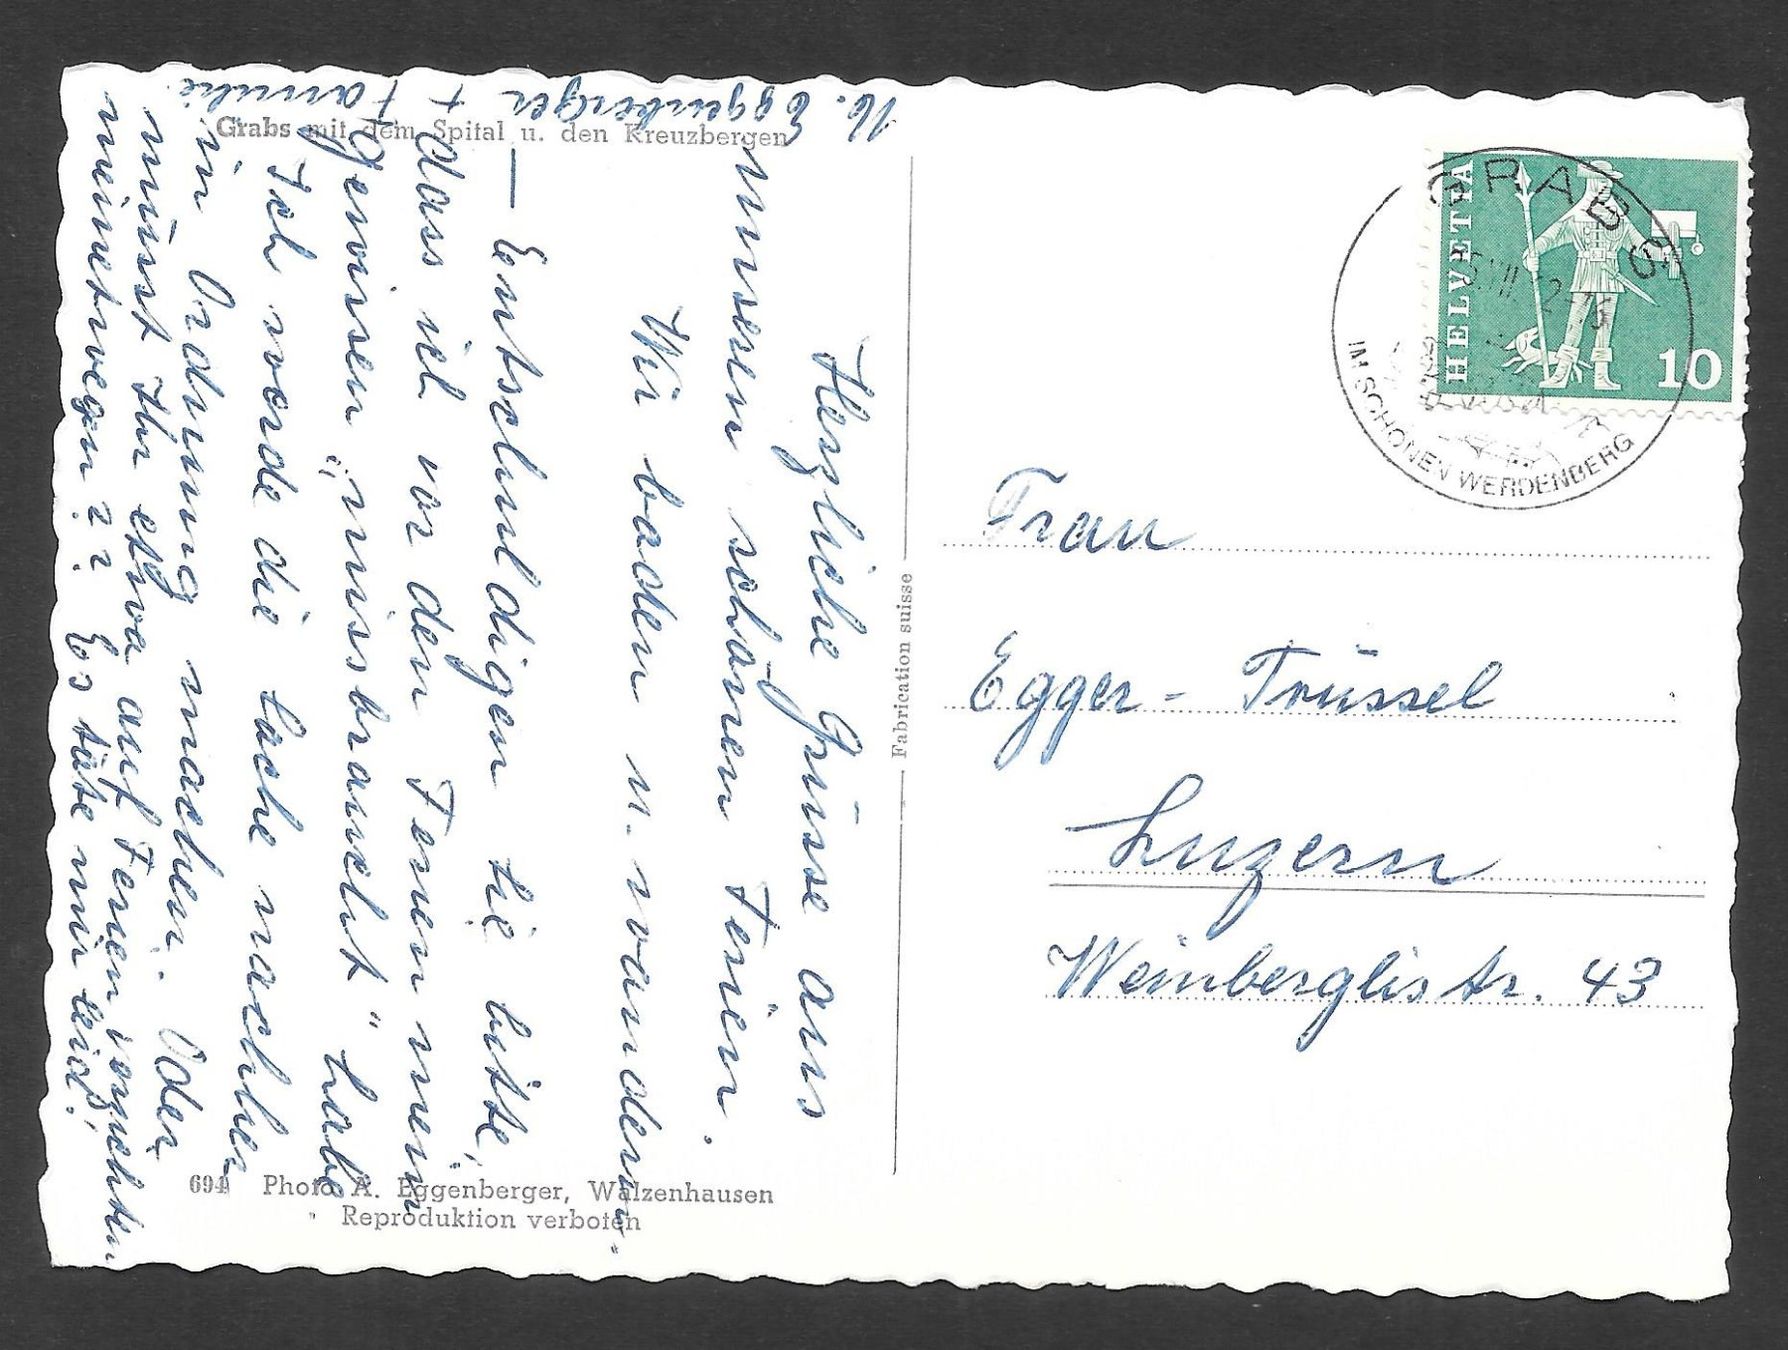 Grabs mit dem Spital u. den Kreuzbergen
Herzliche Grüsse aus
unseren schönen Ferien.
Wir baden u. wandern.
— Entschuldigen Sie bitte,
dass ich vor den Ferien mein
Gewissen „missbraucht" habe
Ich werde die Sache nachher
in Ordnung machen. Oder
müsst Ihr etwa auf Ferien verzichten
meinetwegen?? Es täte mir leid!
Eggenberger + Familie
694 Photo A. Eggenberger, Walzenhausen
Reproduktion verboten
Fabrication suisse
HELVETIA
10
GRABS
IM SCHÖNEN WERDENBERG
Frau
Egger-Trüssel
Luzern
Weinberglistr. 43